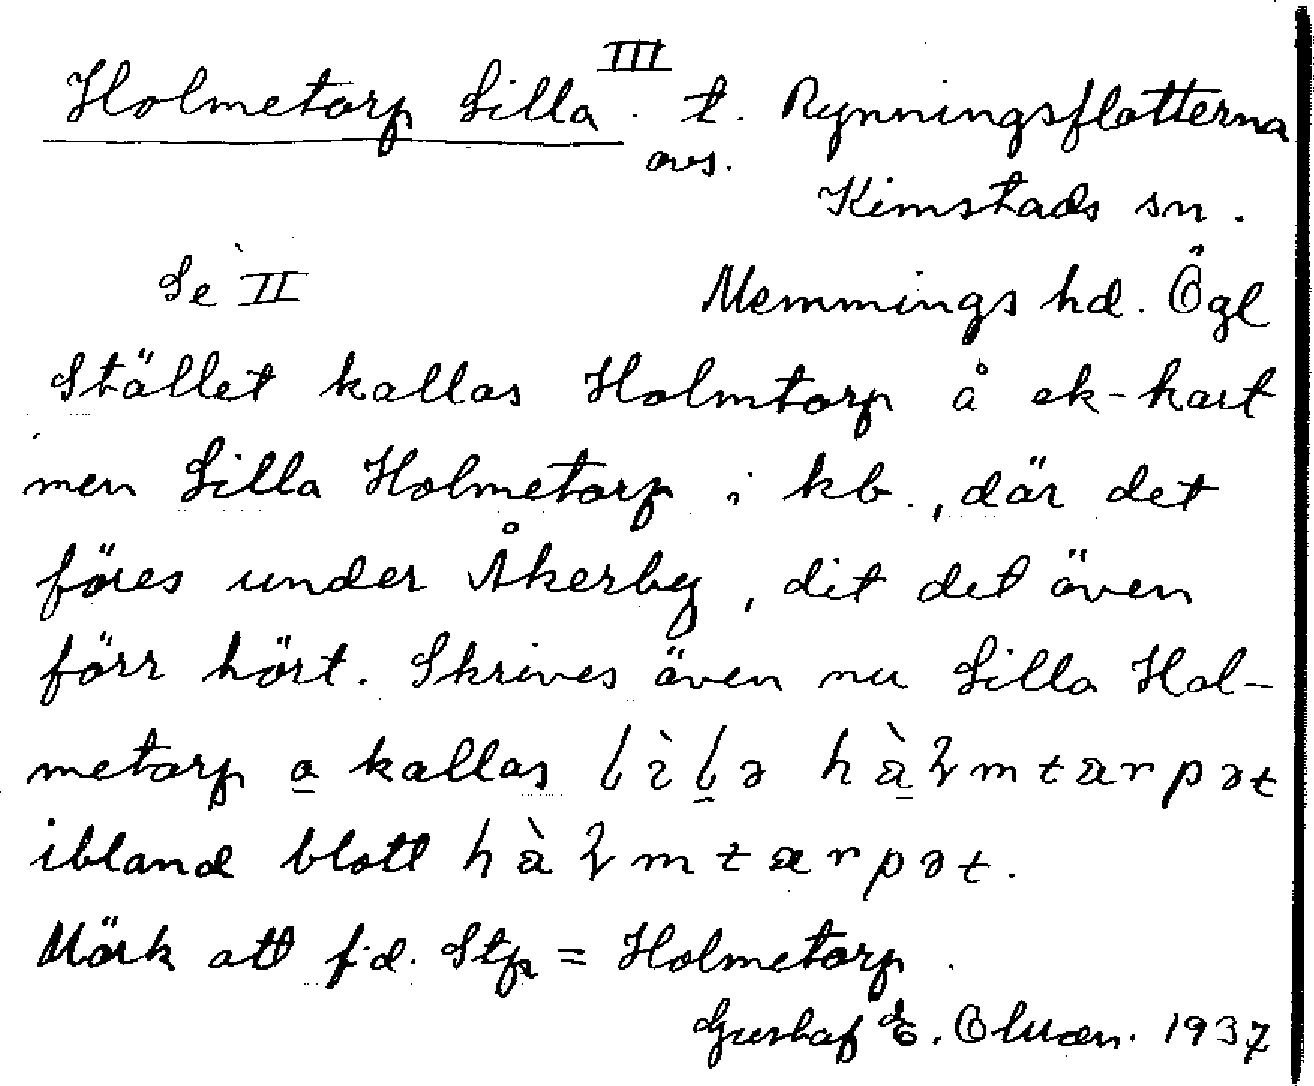 Holmetorp Lilla III t. Rynningsflotterna
avs.
Kimstads sn.
Se II Memmings hd. Ögl
Stället kallas Holmtorp å ek-kart
men Lilla Holmetorp i kb., där det
föres under Åkerby, dit det även
förr hört. Skrives även nu Lilla Hol-
metorp a kallas
ibland blott
Märk att f.d. Stp = Holmetorp.
Gustaf E. 1937